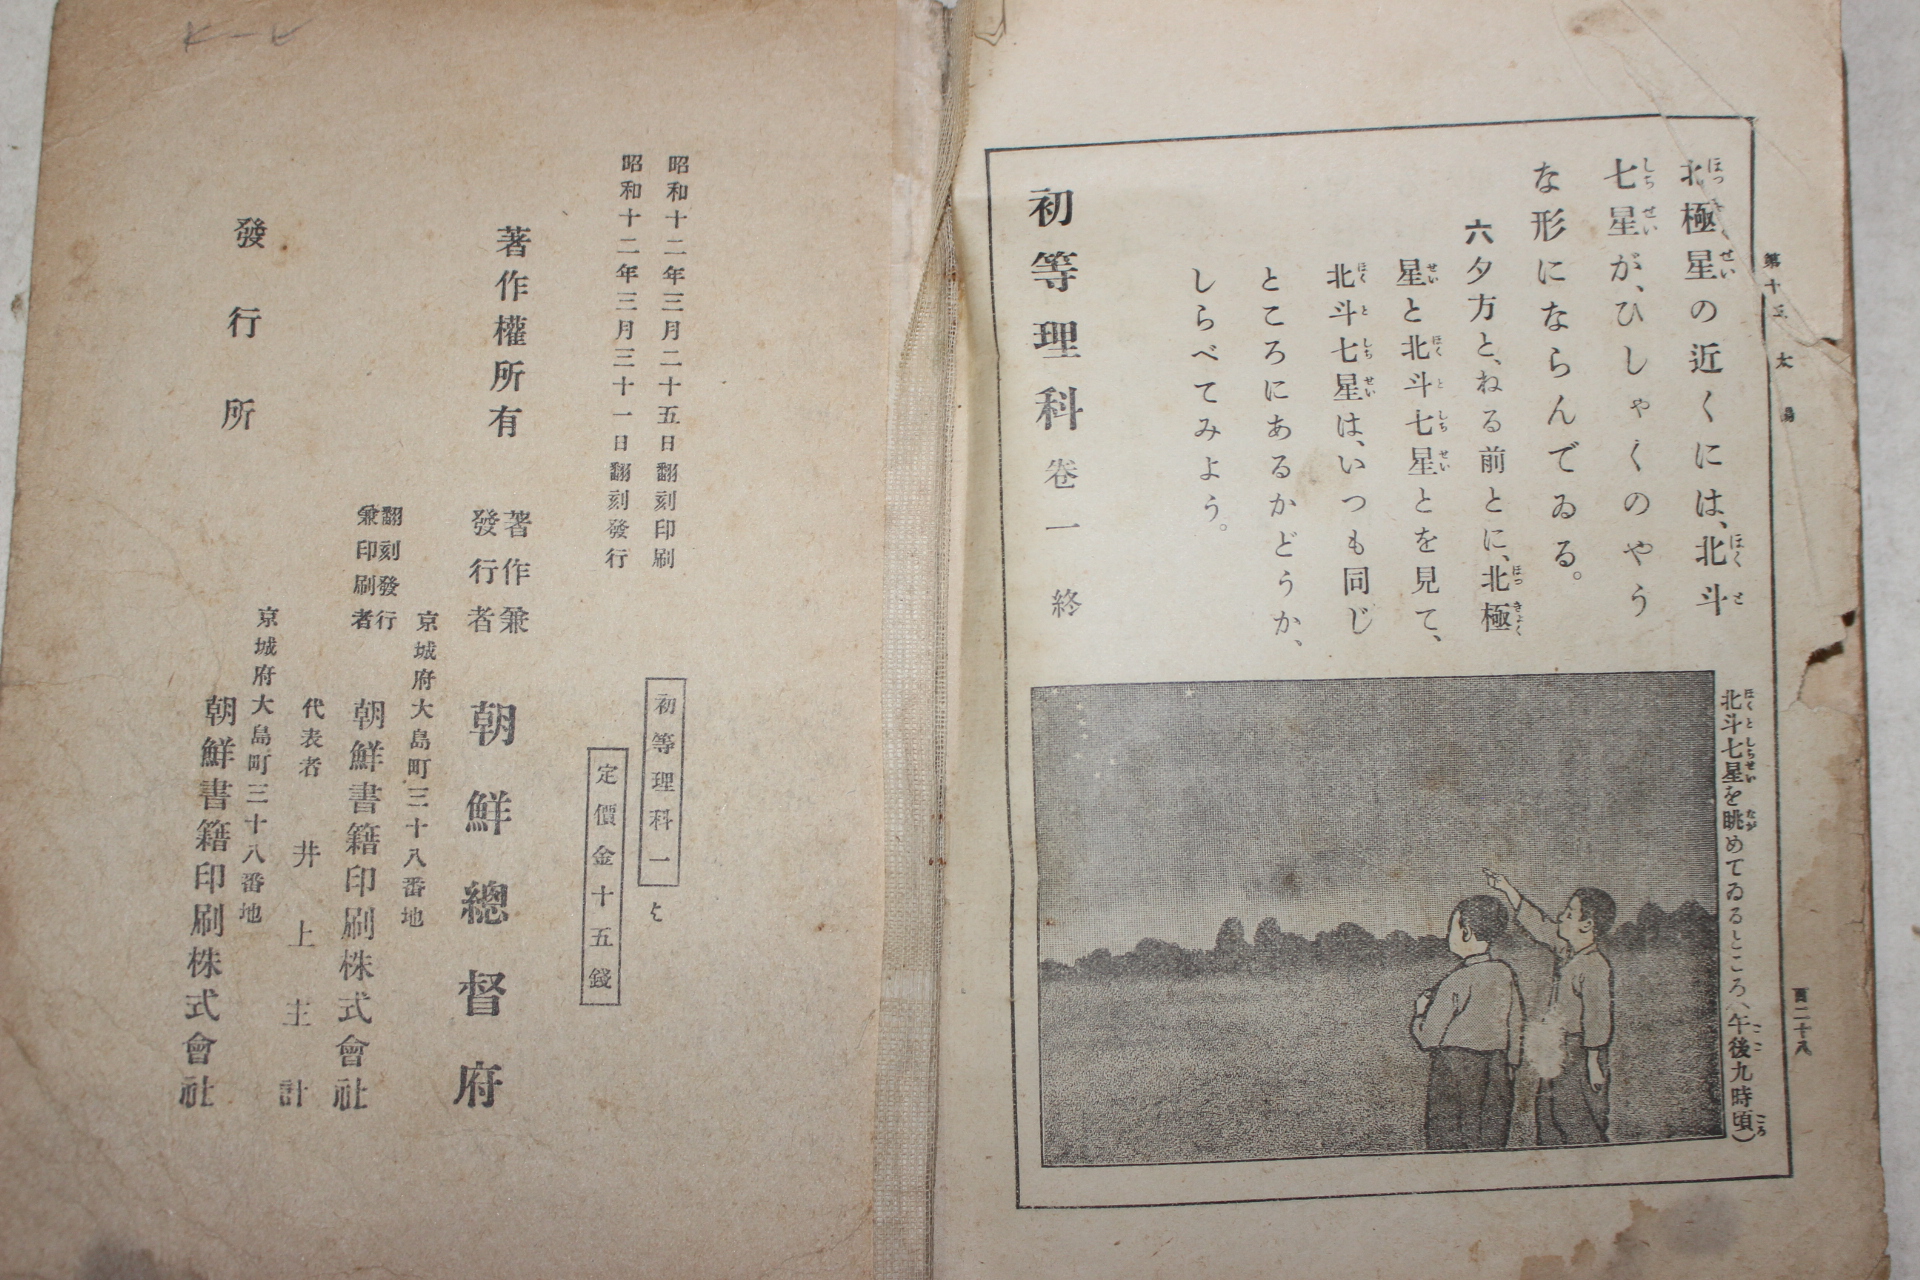 第十三 太陽
百二十八
北極星の近くには、北斗
七星が、ひしゃくのやう
な形にならんでゐる。
六 夕方と、ねる前とに、北極
星と北斗七星とを見て、
北斗七星は、いつも同じ
ところにあるかどうか、
しらべてみよう。
北斗七星を眺めてゐるところ(午後九時頃)
初等理科 卷一 終
昭和十二年三月二十五日翻刻印刷
昭和十二年三月三十一日翻刻發行
初等理科一 と
定價金十五錢
著作權所有
著作兼
發行者
朝鮮總督府
京城府大島町三十八番地
翻刻發行
兼印刷者
朝鮮書籍印刷株式會社
代表者 井上主計
京城府大島町三十八番地
發行所
朝鮮書籍印刷株式會社